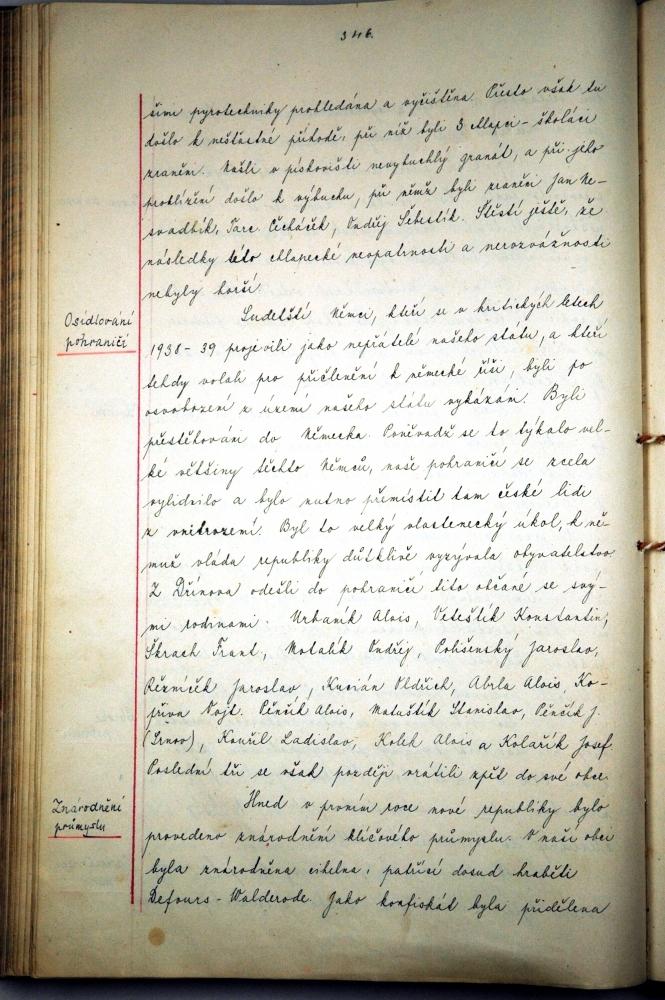 346.
šimi pyrotechniky prohledána a vyčištěna. Přesto však tu
došlo k nešťastné příhodě, při níž byli 3 chlapci - školáci
zraněni. Našli v pískovišti nevybuchlý granát, a při jeho
prohlížení došlo k výbuchu, při němž byli zraněni Jan Ne-
svadbík, Jarc. Čecháček, Ondřej Šebestík. Štěstí ještě, že
následky této chlapecké neopatrnosti a nerozvážnosti
nebyly horší.
Osídlování
pohraničí
Sudetští Němci, kteří se v kritických letech
1938 - 39 projevili jako nepřátelé našeho státu, a kteří
tehdy volali pro přičlenění k německé říši, byli po
osvobození z území našeho státu vykázáni. Byli
přestěhováni do Německa. Poněvadž se to týkalo vel-
ké většiny těchto Němců, naše pohraničí se zcela
vylidnilo a bylo nutno přemístit tam české lidi
z vnitrozemí. Byl to velký vlastenecký úkol, k ně-
muž vláda republiky důtklivě vyzývala obyvatelstvo.
Z Dřínova odešli do pohraničí tito občané se svý-
mi rodinami: Urbaník Alois, Veteštík Konstantin,
Škrach Frant., Motalík Ondřej, Polišenský Jaroslav,
Řezníček Jaroslav, Kurián Oldřich, Abrla Alois, Ko-
půva Vojt. Pěnčík Alois, Matuštík Stanislav, Pěnčík J.
Kouřil Ladislav, Kolek Alois a Kolařík Josef.
Poslední tři se však později vrátili zpět do své obce.
Znárodnění
průmyslu
Hned v prvním roce nové republiky bylo
provedeno znárodnění klíčového průmyslu. V naší obci
byla znárodněna cihelna, patřící dosud hraběti
Defours - Walderode. Jako konfiskát byla přidělena